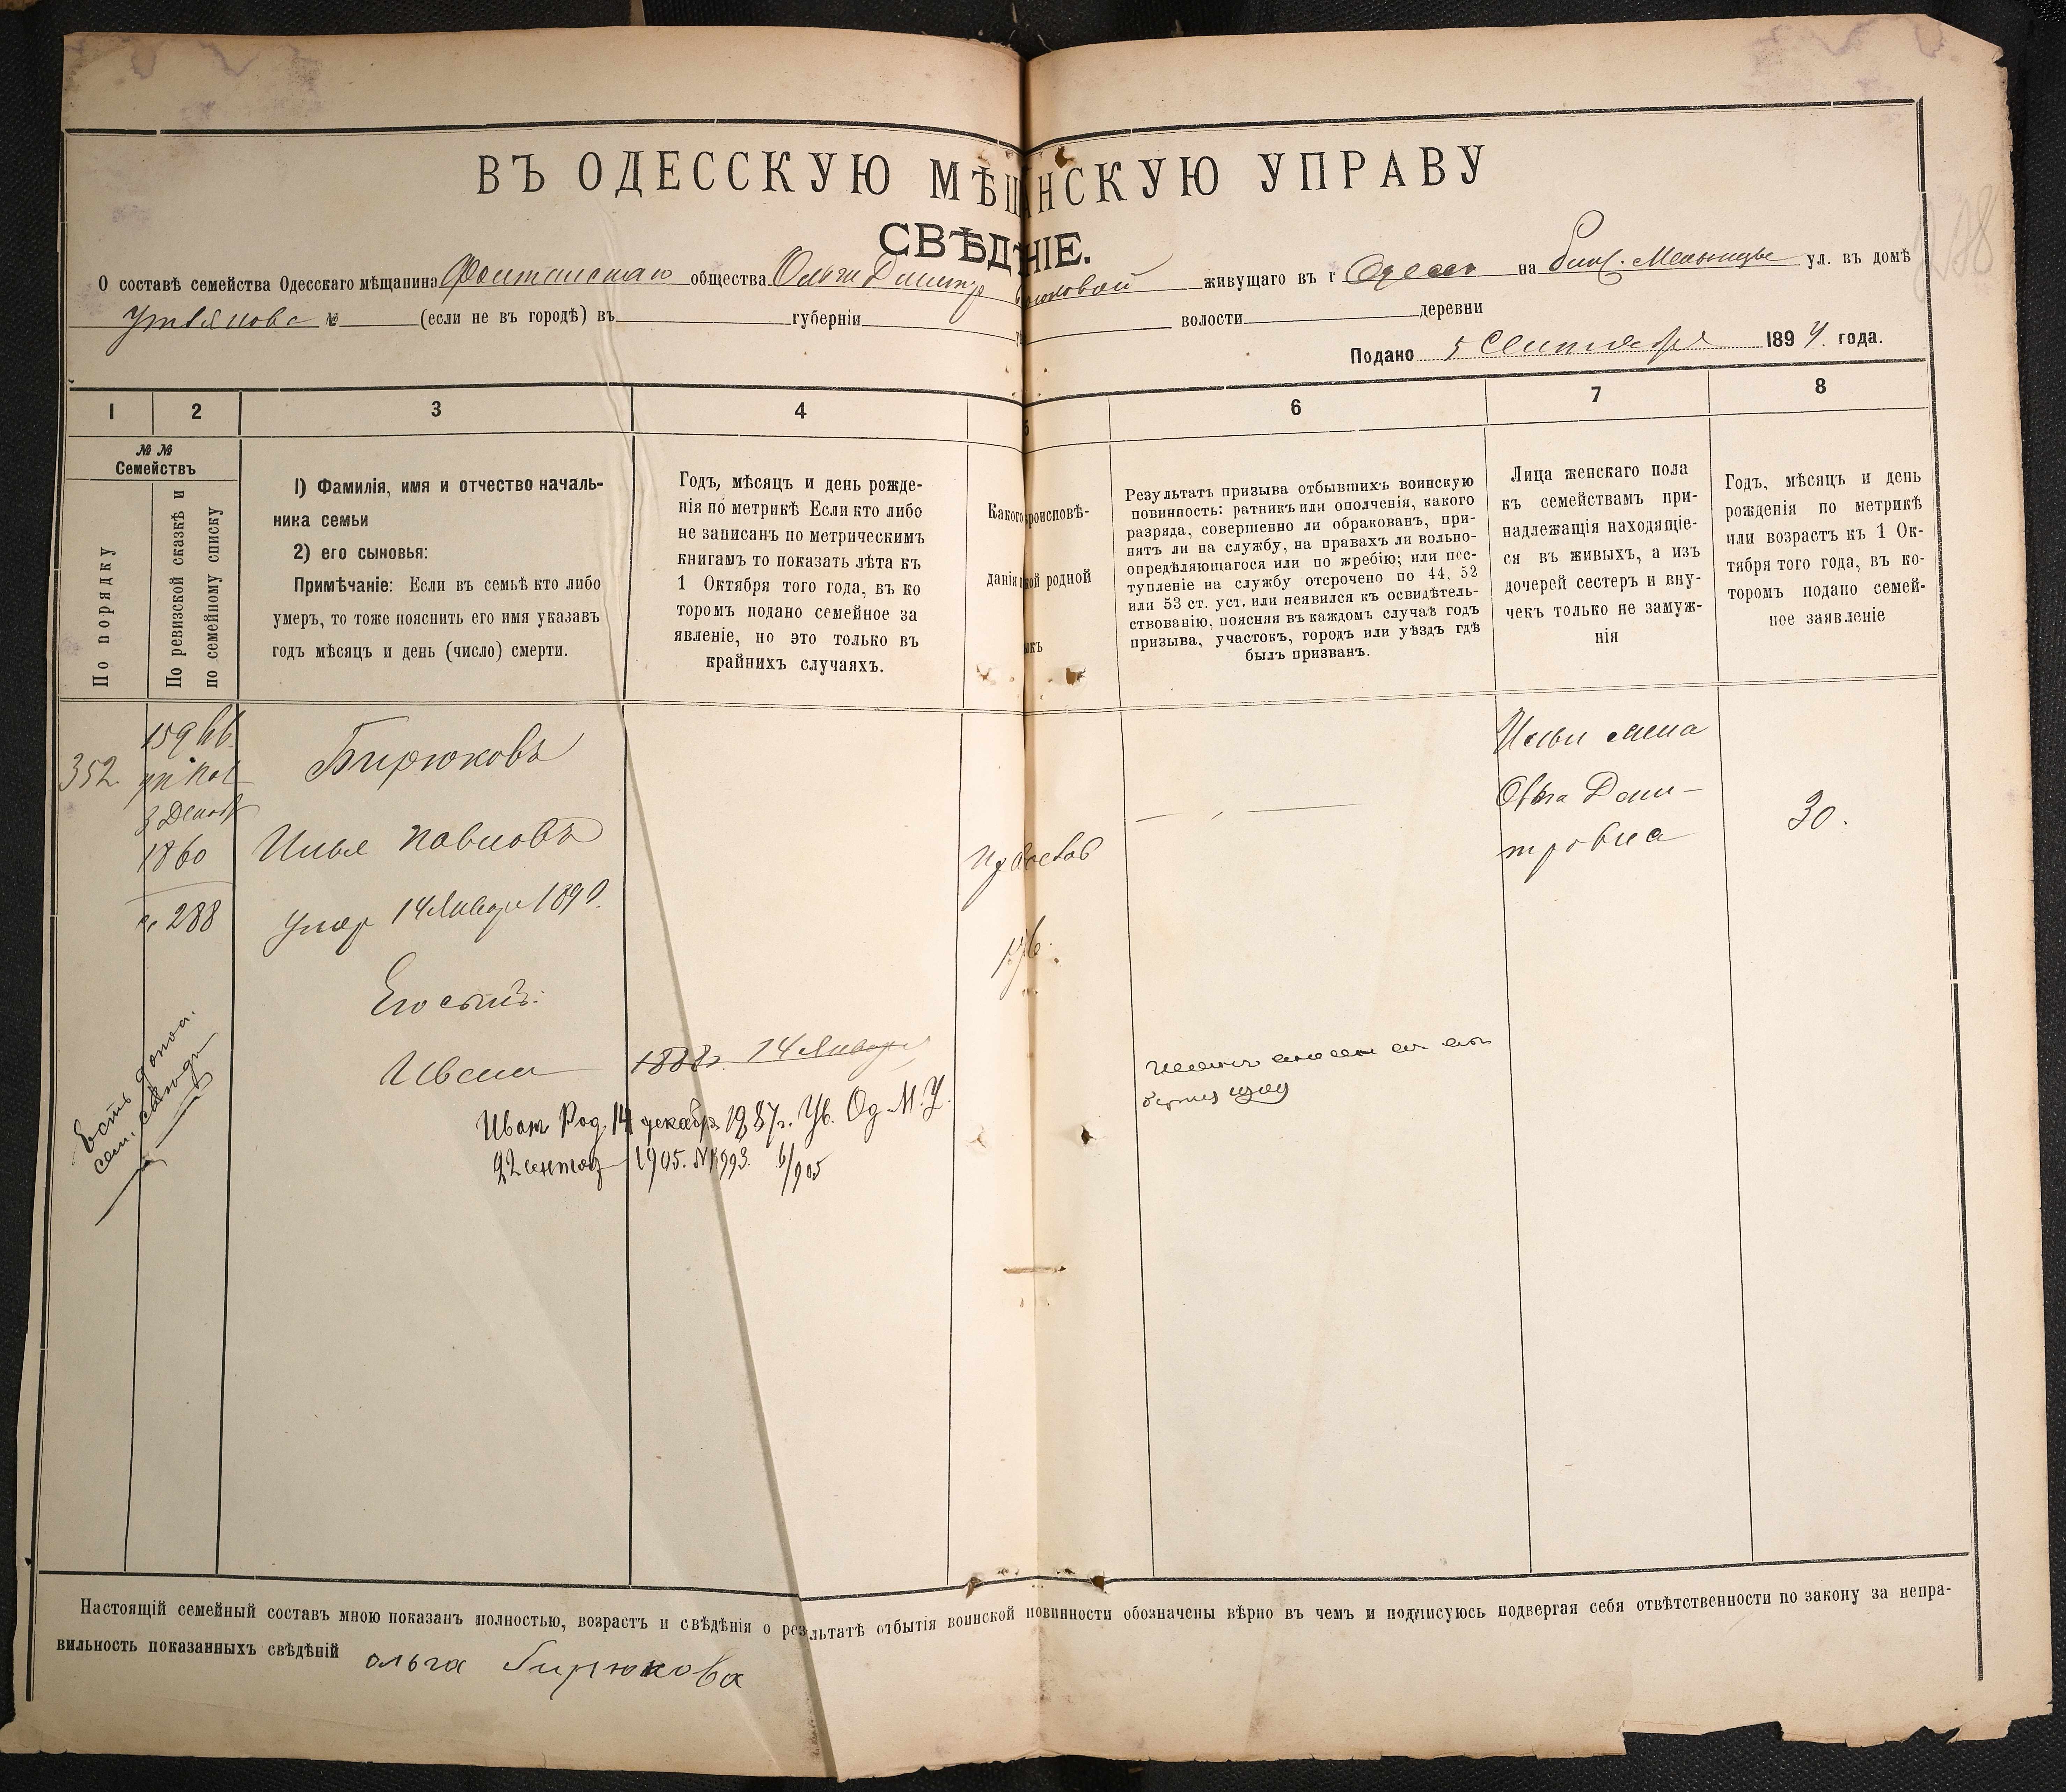 ВЪ ОДЕССКУЮ МѢЩАНСКУЮ УПРАВУ
СВѢДѢНІЕ.
О составѣ семейства Одесскаго мѣщанина Фонтанскаго общества Ольги Дмитр Бирюковой живущаго въ г Одессѣ на ул. въ домѣ
№ (если не въ городѣ) въ губерніи волости деревни
Подано 5 Сентября 1894. года.
1 2 3 4 5 6 7 8
№ №
Семействъ
По порядку
По ревизской сказкѣ и
по семейному списку
1) Фамилія, имя и отчество началь-
ника семьи
2) его сыновья:
Примѣчаніе: Если въ семьѣ кто либо
умеръ, то тоже пояснить его имя указавъ
годъ мѣсяцъ и день (число) смерти.
Годъ, мѣсяцъ и день рожде-
нія по метрикѣ Если кто либо
не записанъ по метрическимъ
книгамъ то показать лѣта къ
1 Октября того года, въ ко
торомъ подано семейное за
явленіе, но это только въ
крайнихъ случаяхъ.
Какого вѣроисповѣ-
данія родной
Результатъ призыва отбывшихъ воинскую
повинность: ратникъ или ополченія, какого
разряда, совершенно ли обракованъ, при-
нятъ ли на службу, на правахъ ли вольно-
опредѣляющагося или по жребію; или пос-
тупленіе на службу отсрочено по 44, 52
или 53 ст. уст. или неявился къ освидѣтель-
ствованію, поясняя въ каждомъ случаѣ годъ
призыва, участокъ, городъ или уѣздъ гдѣ
былъ призванъ.
Лица женскаго пола
къ семействамъ при-
надлежащія находящіе-
ся въ живыхъ, а изъ
дочерей сестеръ и вну-
чекъ только не замуж-
нія
Годъ, мѣсяцъ и день
рожденія по метрикѣ
или возрастъ къ 1 Ок-
тября того года, въ ко-
торомъ подано семей-
ное заявленіе
352.
1860
288
Бирюковъ
Илья Павловъ
Умер 14 Января 1890.
Его сынъ:
Иванъ 1888г. 14 Января
Иван Род. 14 декабр. 1887г. Ув. Од. М. У.
22 сентяб 1905. №
Есть допол.
Православ
Ильи жена
Ольга Дми-
тровна
30.
Настоящій семейный составъ мною показанъ полностью, возрастъ и свѣдѣнія о результатѣ отбытія воинской повинности обозначены вѣрно въ чемъ и подписуюсь подвергая себя отвѣтственности по закону за непра-
вильность показанныхъ свѣдѣній ольга бирюкова